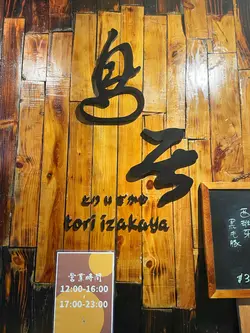 鳥
とりいざかや
tori izakaya
營業時間
12:00-16:00
17:00-23:00